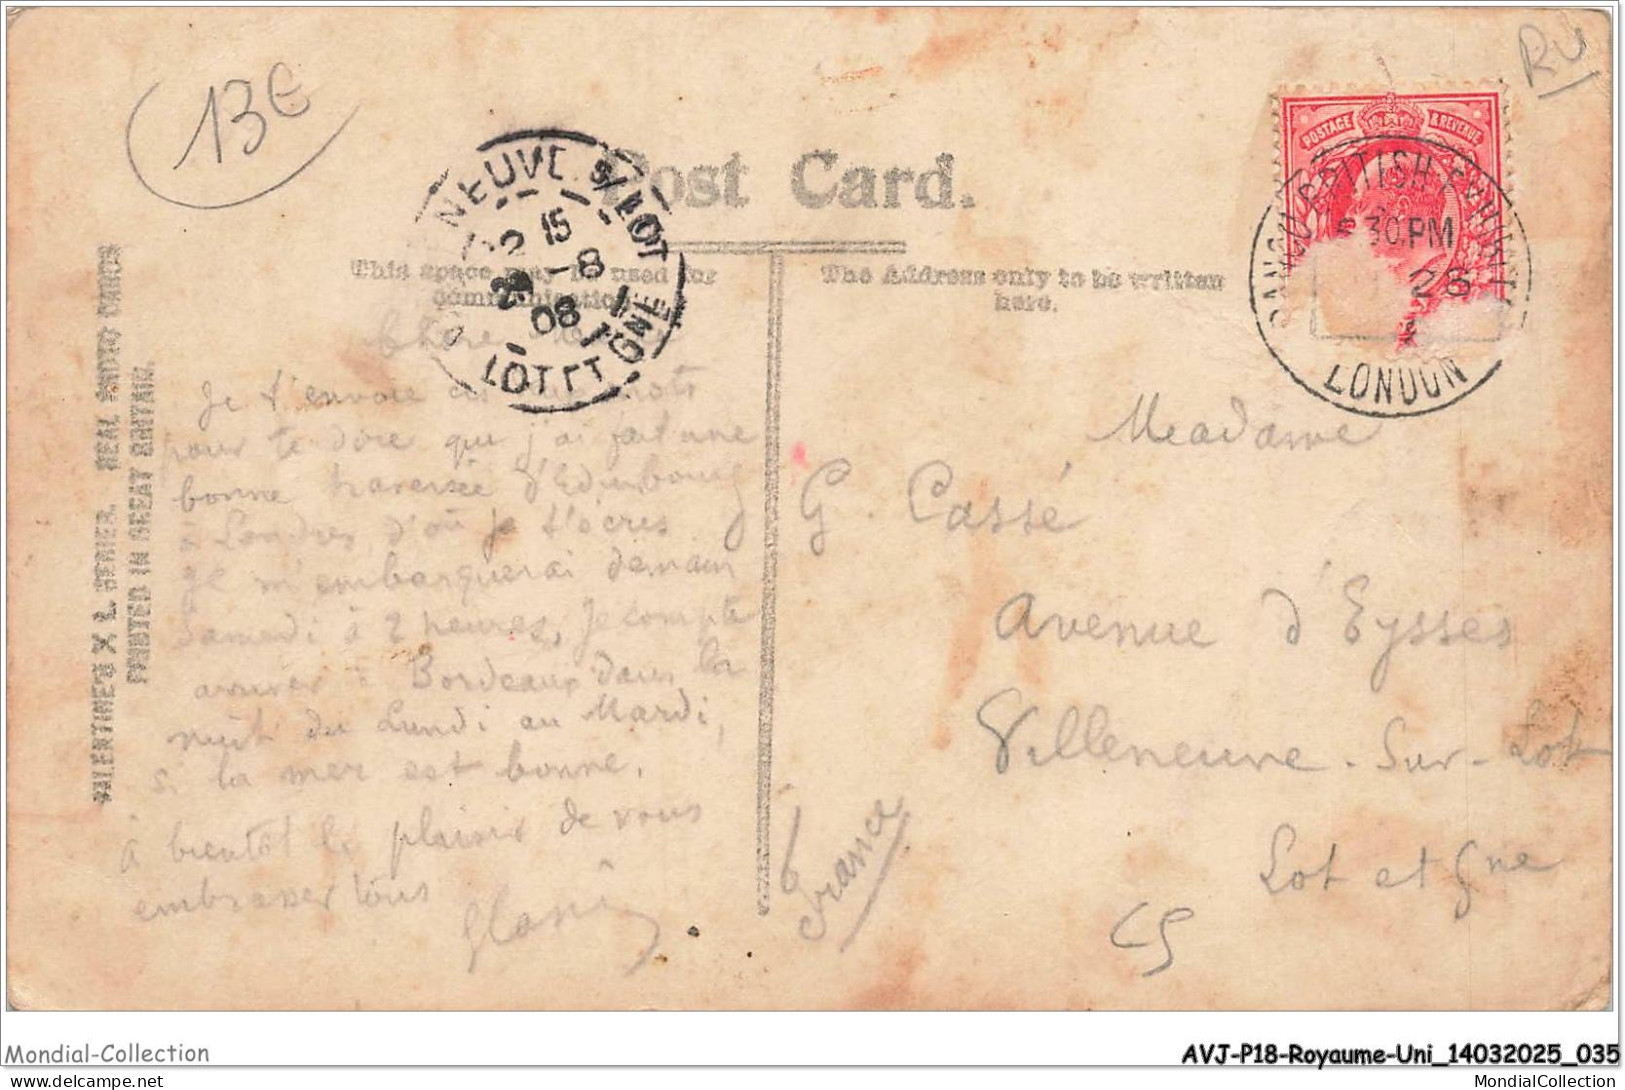 13€
RU
Post Card.
POSTAGE & REVENUE
FRANCO BRITISH EXHIBITION
30 PM
28
LONDON
NEUVE S/LOT
15
-8
08
LOT ET GNE
This space may be used for
communication.
The Address only to be written
here.
VALENTINE'S X L SERIES. REAL PHOTO CARDS
PRINTED IN GREAT BRITAIN.
Chère
Je t'envoie ces mots
pour te dire que j'ai fait une
bonne traversée d'Edimbourg
à Londres d'où je t'écris
Je m'embarquerai demain
Samedi à 2 heures, Je compte
arriver à Bordeaux dans la
nuit du Lundi au Mardi,
si la mer est bonne.
à bientôt le plaisir de vous
embrasser tous
Madame
G. Cassé
Avenue d'Eysses
Villeneuve-Sur-Lot
Lot et Gne
France
Mondial-Collection
AVJ-P18-Royaume-Uni_14032025_035
www.delcampe.net
MondialCollection